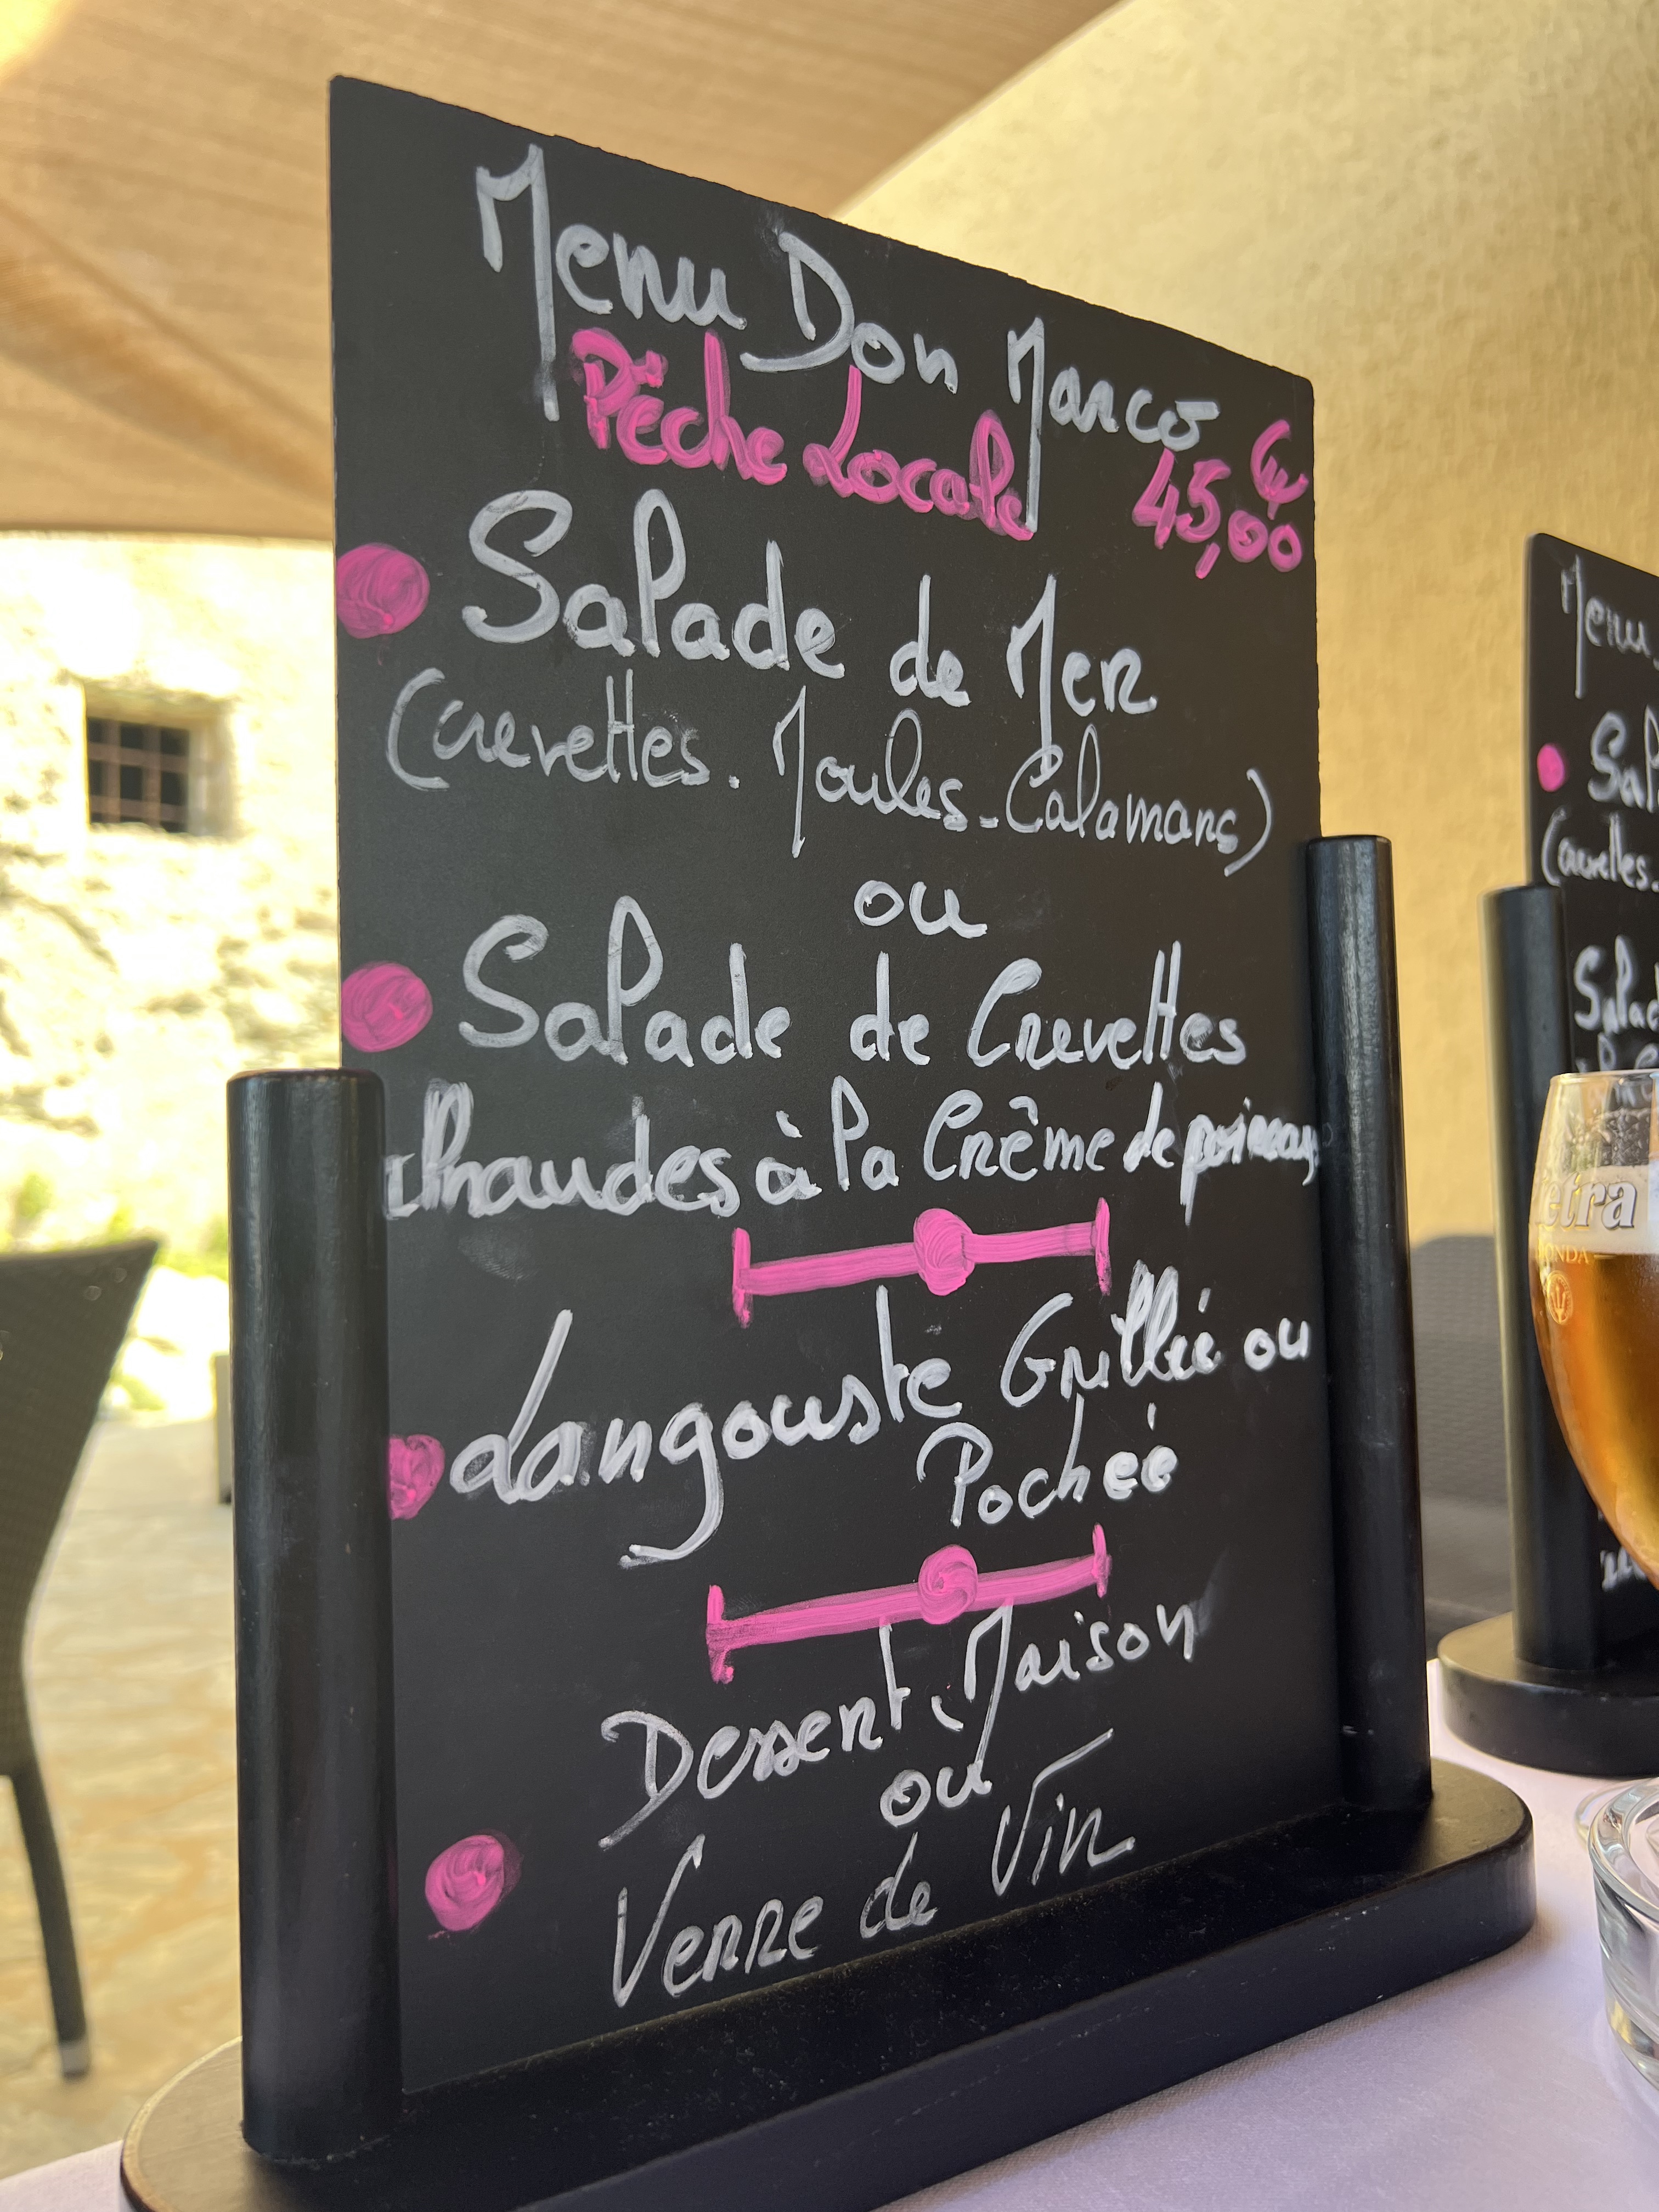 Menu Don Marco
Pêche Locale 45,00 €
Salade de Mer
(Crevettes. Moules - Calamars)
ou
Salade de Crevettes
Chaudes à la Crême de poireaux
Langouste Grillée ou
Pochée
Dessert Maison
ou
Verre de Vin
Menu
Sal
(Crevettes.
Salad
etra
ONDA